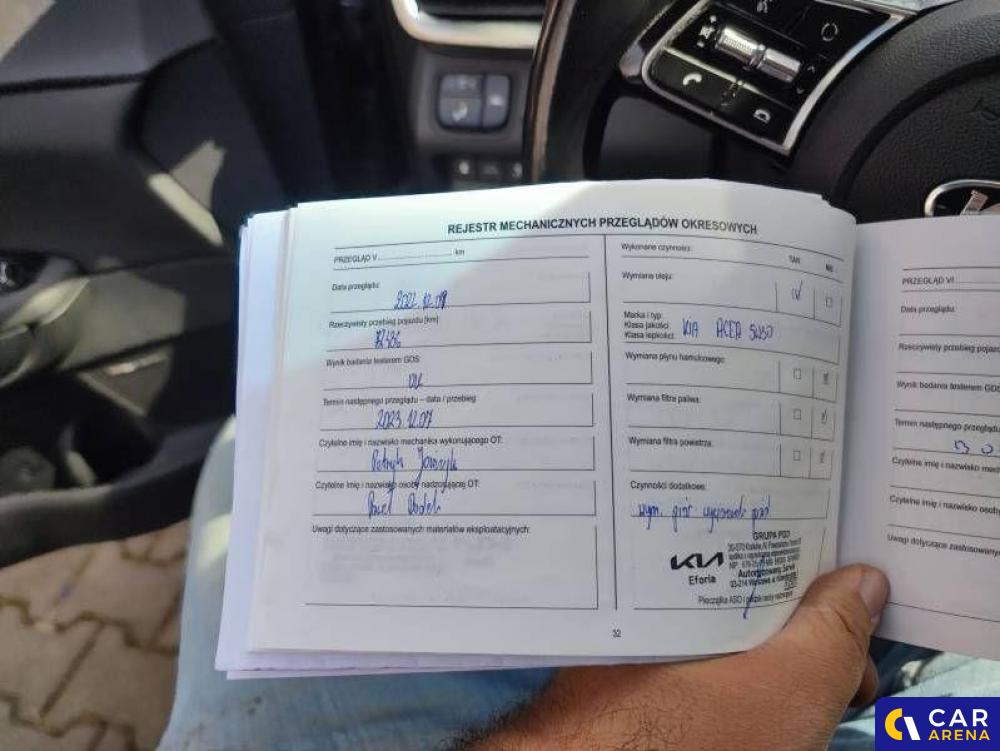 REJESTR MECHANICZNYCH PRZEGLĄDÓW OKRESOWYCH
PRZEGLĄD V .................... km
Data przeglądu:
2022.12.08
Rzeczywisty przebieg pojazdu [km]
72486
Wynik badania testerem GDS:
OK
Termin następnego przeglądu – data / przebieg:
2023.12.07
Czytelne imię i nazwisko mechanika wykonującego OT:
Patryk
Czytelne imię i nazwisko osoby nadzorującej OT:
Paweł
Uwagi dotyczące zastosowanych materiałów eksploatacyjnych:
Wykonane czynności:
TAK NIE
Wymiana oleju:
Marka i typ:
Klasa jakości:
Klasa lepkości:
KIA ACEA 5W30
Wymiana płynu hamulcowego:
Wymiana filtra paliwa:
Wymiana filtra powietrza:
Czynności dodatkowe:
wym. piór
GRUPA PGD
KIA
Eforia
Autoryzowany Serwis
Pieczątka ASO i
32
PRZEGLĄD VI
Data przeglądu:
Rzeczywisty przebieg pojazd
Wynik badania testerem GDS
Termin następnego przeglądu
Czytelne imię i nazwisko mech
Czytelne imię i nazwisko osoby
Uwagi dotyczące zastosowany
CAR
ARENA